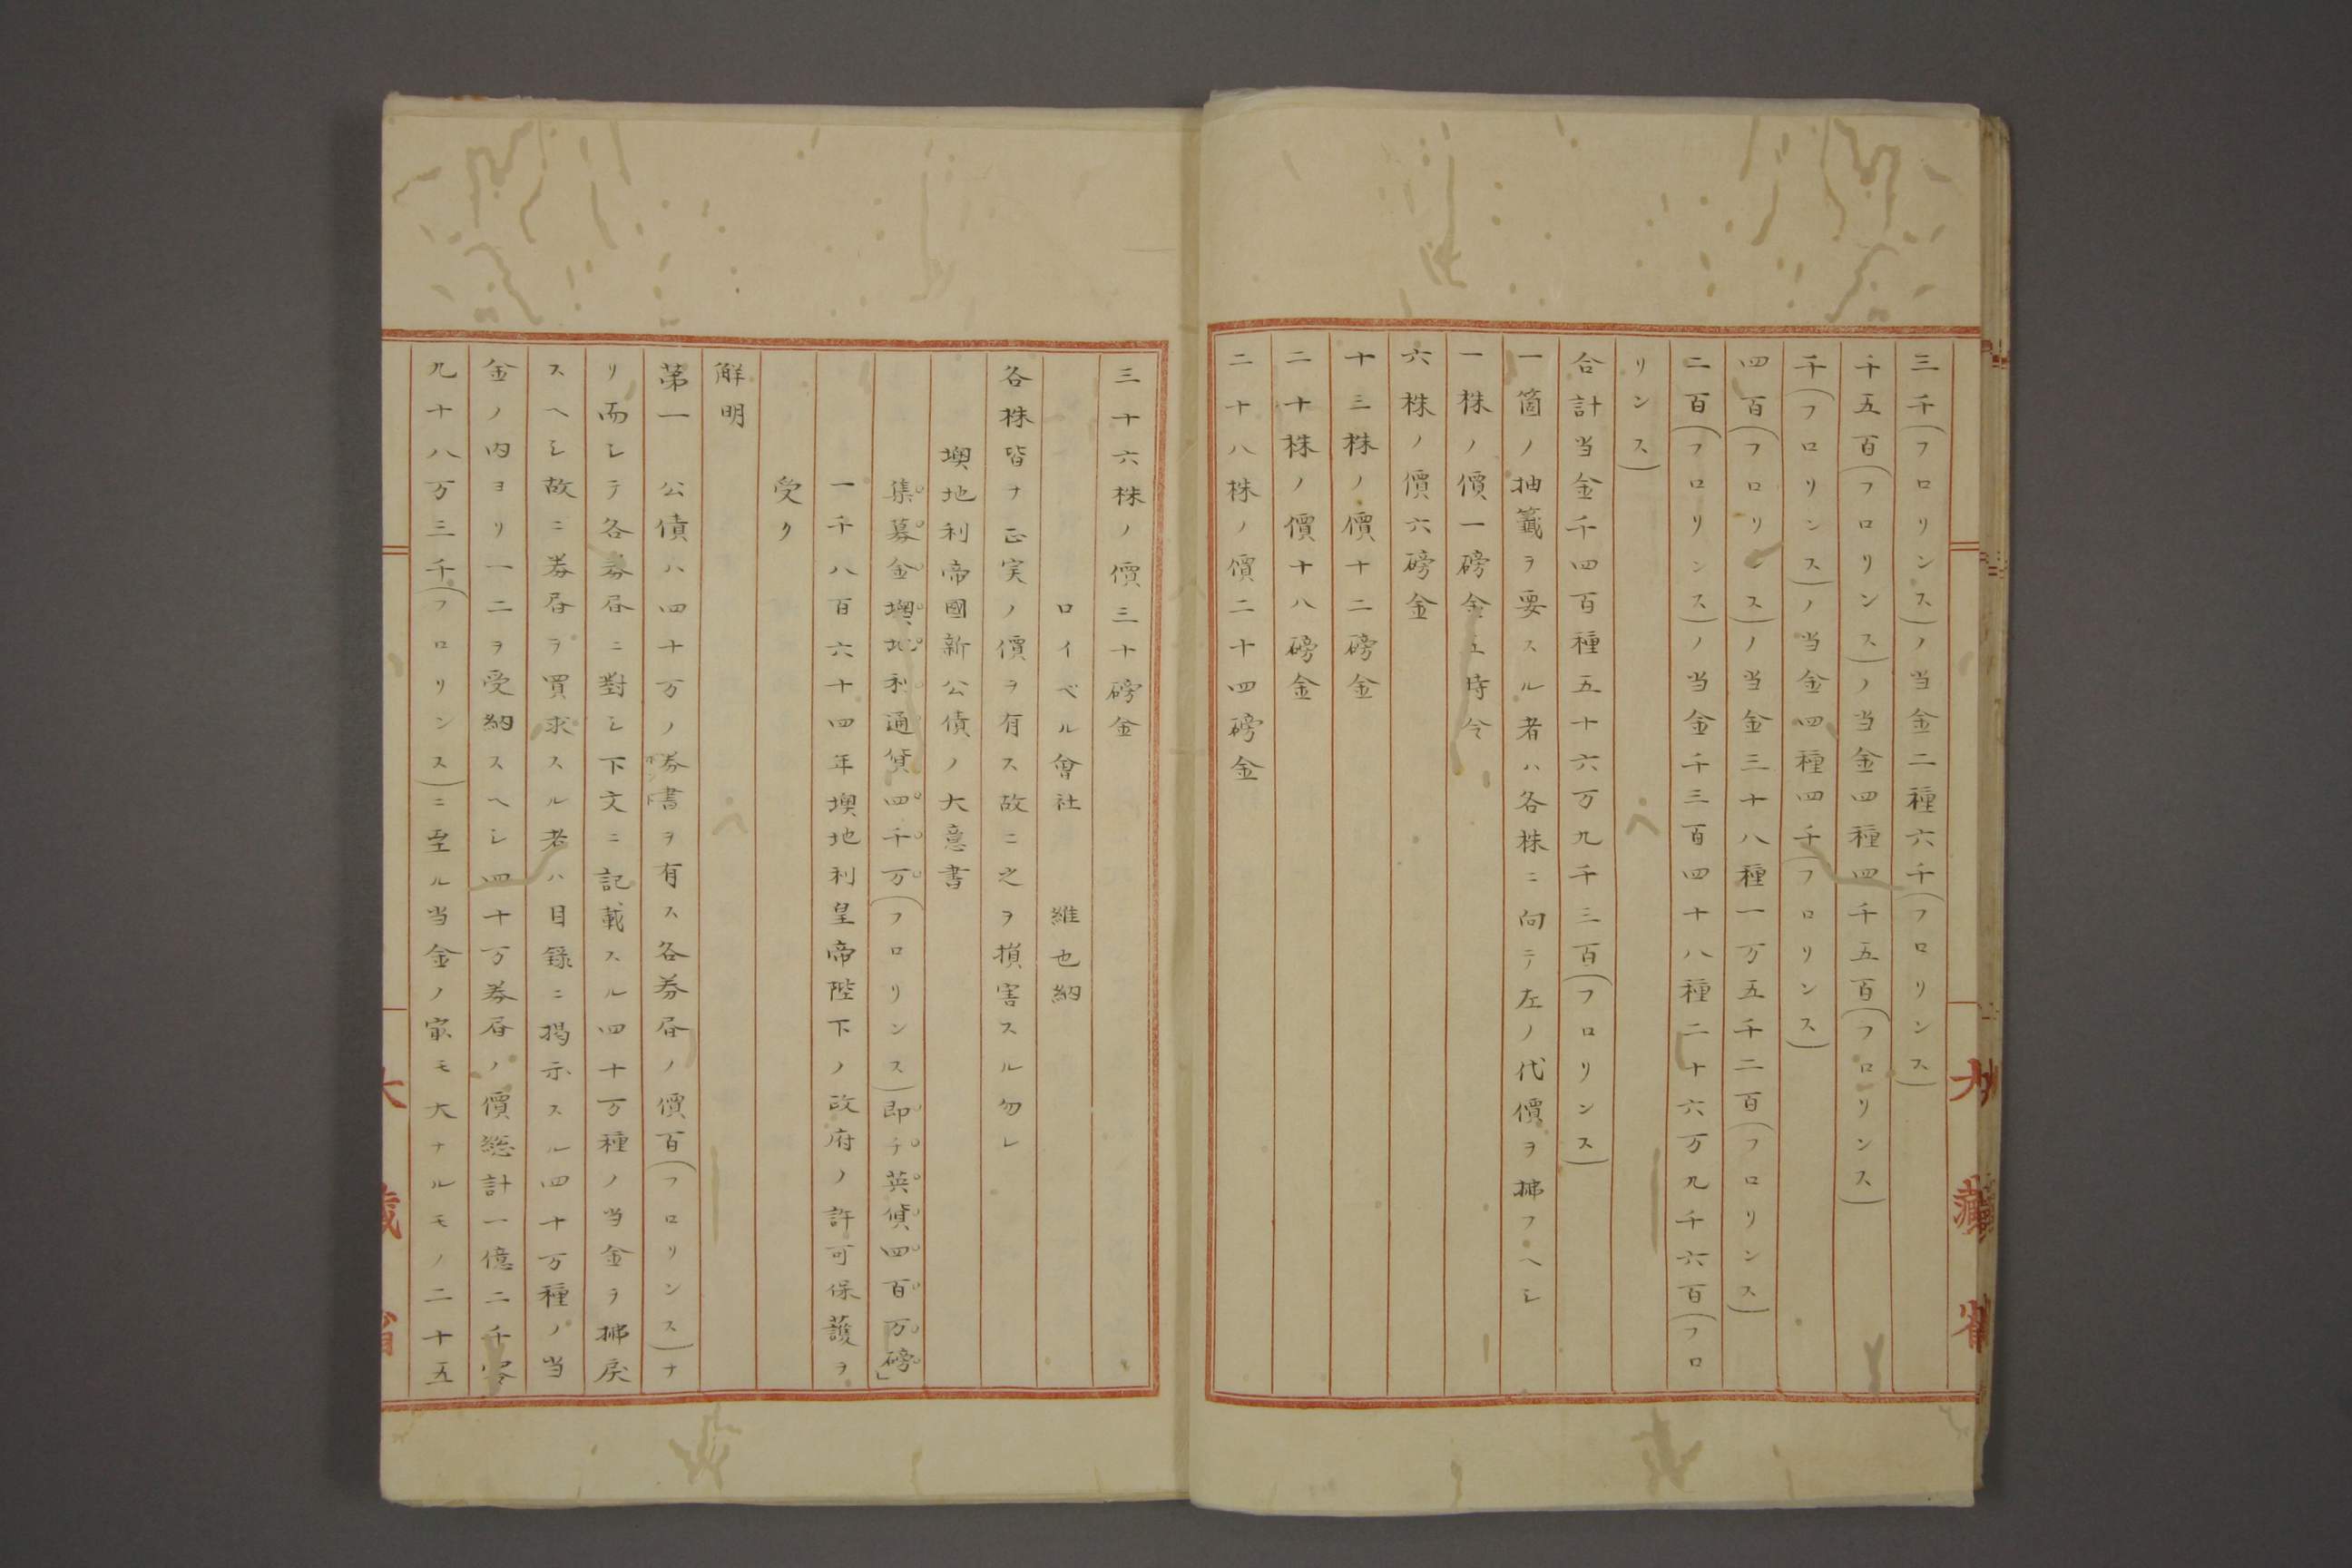 三千(フロリンス)ノ当金二種六千(フロリンス)
千五百(フロリンス)ノ当金四種四千五百(フロリンス)
千(フロリンス)ノ当金四種四千(フロリンス)
四百(フロリンス)ノ当金三十八種一万五千二百(フロリンス)
二百(フロリンス)ノ当金千三百四十八種二十六万九千六百(フロ
リンス)
合計当金千四百種五十六万九千三百(フロリンス)
一箇ノ抽籤ヲ要スル者ハ各株ニ向テ左ノ代價ヲ拂フヘシ
一株ノ價一磅金五時令
六株ノ價六磅金
十三株ノ價十二磅金
二十株ノ價十八磅金
二十八株ノ價二十四磅金
大藏省
三十六株ノ價三十磅金
ロイベル會社 維也納
各株皆ナ正実ノ價ヲ有ス故ニ之ヲ損害スル勿レ
墺地利帝國新公債ノ大意書
集募金墺地利通貨四千万(フロリンス)即チ英貨四百万磅」
一千八百六十四年墺地利皇帝陛下ノ政府ノ許可保護ヲ
受ク
解明
第一 公債ハ四十万ノ券書ヲ有ス各券㫪ノ價百(フロリンス)ナ
リ而シテ各券㫪ニ對シ下文ニ記載スル四十万種ノ当金ヲ拂戻
スヘシ故ニ券㫪ヲ買求スル者ハ目録ニ掲示スル四十万種ノ当
金ノ内ヨリ一二ヲ受納スヘシ四十万券㫪ノ價総計一億二千零
九十八万三千(フロリンス)ニ至ル当金ノ㝡モ大ナルモノ二十五